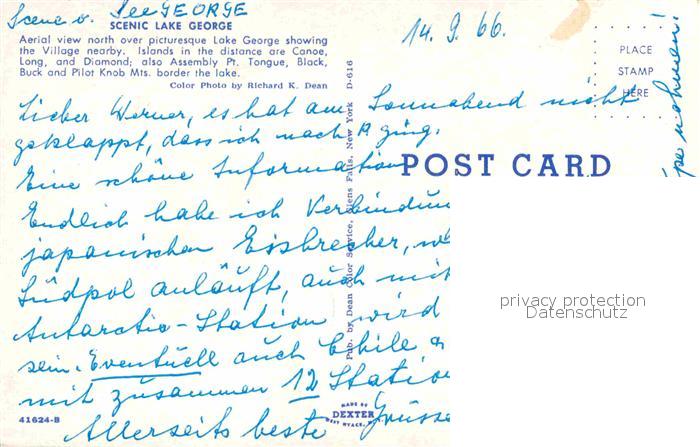 Scene v. See GEORGE
SCENIC LAKE GEORGE
Aerial view north over picturesque Lake George showing
the Village nearby. Islands in the distance are Canoe,
Long, and Diamond; also Assembly Pt. Tongue, Black,
Buck and Pilot Knob Mts. border the lake.
Color Photo by Richard K. Dean
14. 9. 66.
PLACE
STAMP
HERE
Lieber Werner, es hat am Sonnabend nicht
geklappt, dass ich nach P. ging.
Eine schöne Information
POST CARD
Endlich habe ich Verbindun
japanischen Eisbrecher, w
Südpol anläuft, auch mit
Antarctic-Station wird
sein. Eventuell auch Chile
mit zusammen 12 Statio
Allerseits beste Grüsse
41624-B
MADE BY
DEXTER
WEST NYACK, N.Y.
Pub. by Dean Color Service, Glens Falls, New York D-616
privacy protection
Datenschutz